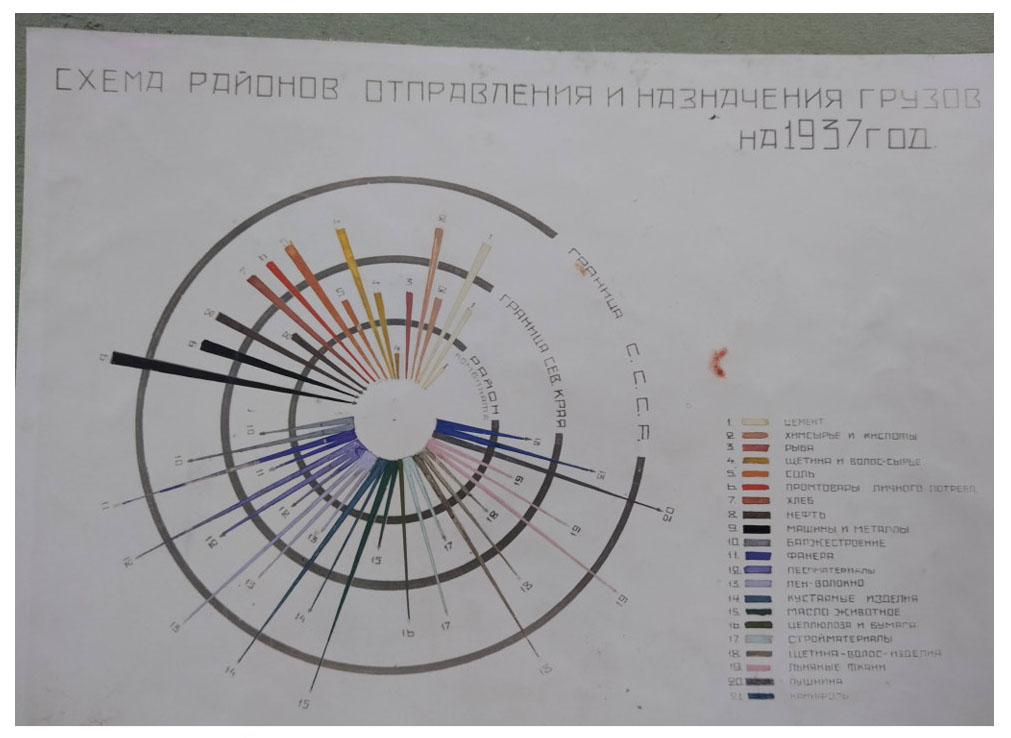 СХЕМА РАЙОНОВ ОТПРАВЛЕНИЯ И НАЗНАЧЕНИЯ ГРУЗОВ
НА 1937 ГОД.
ГРАНИЦА С.С.С.Р.
ГРАНИЦА СЕВ. КРАЯ
РАЙОН
КОМБИНАТА
1. ЦЕМЕНТ
2. ХИМСЫРЬЕ И КИСЛОТЫ
3. РЫБА
4. ЩЕТИНА И ВОЛОС-СЫРЬЕ
5. СОЛЬ
6. ПРОМТОВАРЫ ЛИЧНОГО ПОТРЕБЛ.
7. ХЛЕБ
8. НЕФТЬ
9. МАШИНЫ И МЕТАЛЛЫ
10. БАРЖЕСТРОЕНИЕ
11. ФАНЕРА
12. ЛЕСМАТЕРИАЛЫ
13. ЛЕН-ВОЛОКНО
14. КУСТАРНЫЕ ИЗДЕЛИЯ
15. МАСЛО ЖИВОТНОЕ
16. ЦЕЛЛЮЛОЗА И БУМАГА
17. СТРОЙМАТЕРИАЛЫ
18. ЩЕТИНА-ВОЛОС-ИЗДЕЛИЯ
19. ЛЬНЯНЫЕ ТКАНИ
20. ПУШНИНА
21. КАНИФОЛЬ